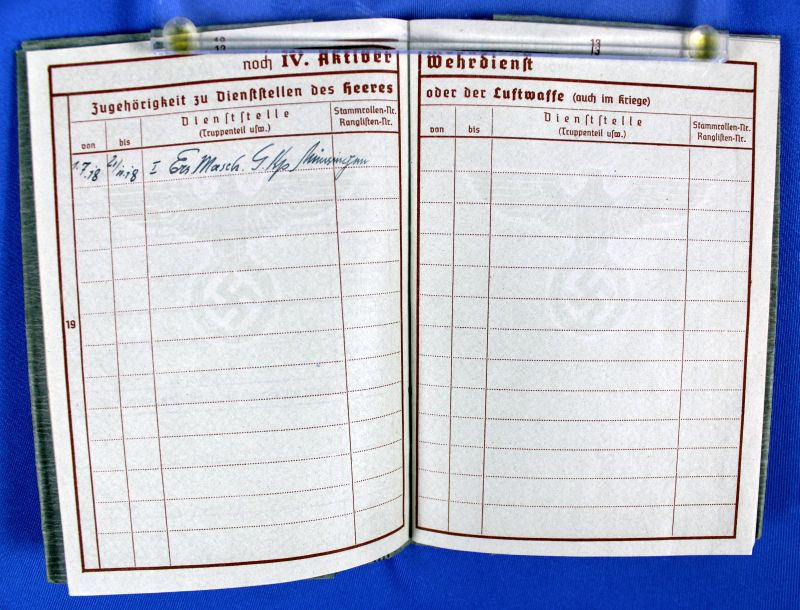 12
13
noch IV. Aktiver
Zugehörigkeit zu Dienststellen des Heeres
von
bis
Dienststelle
(Truppenteil usw.)
Stammrollen-Nr.
Ranglisten-Nr.
1.7.18 21/11.18 I Ers Masch. G. Kp Münsingen
19
13
Wehrdienst
oder der Luftwaffe (auch im Kriege)
von
bis
Dienststelle
(Truppenteil usw.)
Stammrollen-Nr.
Ranglisten-Nr.